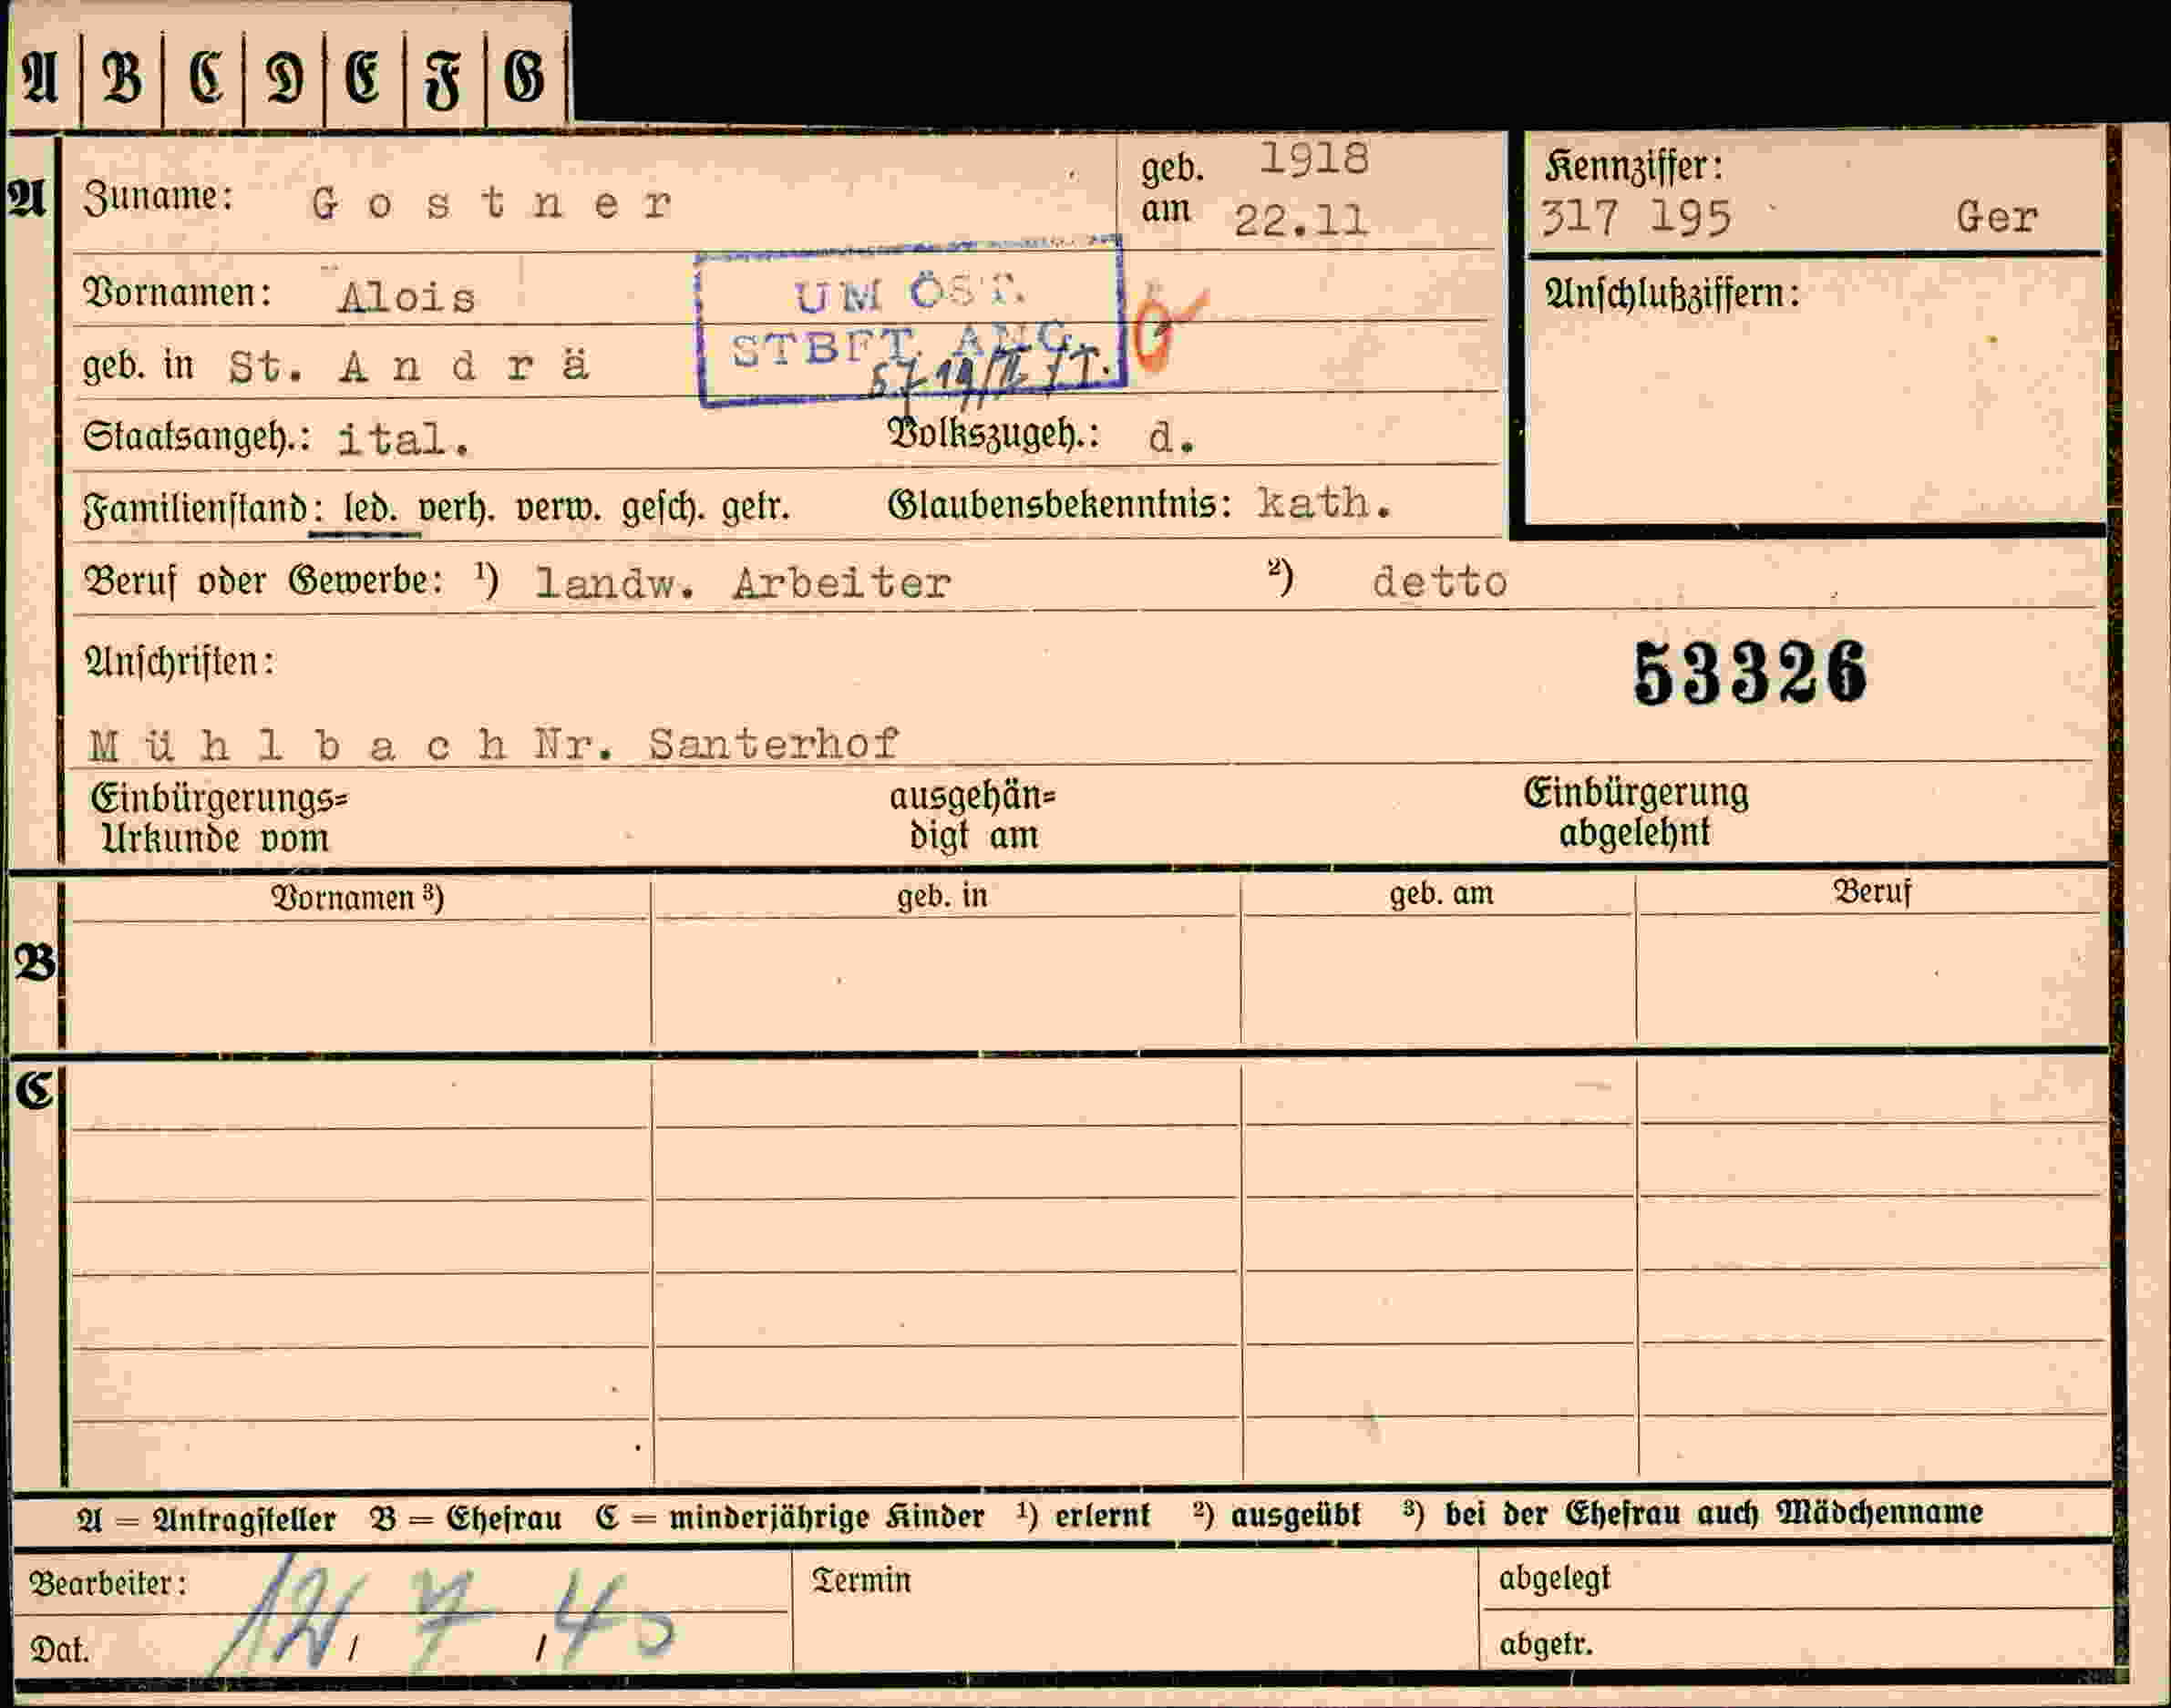 A B C D E F G
A Zuname: Gostner geb. am 1918 22.11 Kennziffer: 317 195 Ger
Vornamen: Alois Anschlußziffern:
UM ÖST.
STBFT. ANG.
geb. in St. Andrä
Staatsangeh.: ital. Volkszugeh.: d.
Familienstand: led. verh. verw. gesch. getr. Glaubensbekenntnis: kath.
Beruf oder Gewerbe: ¹) landw. Arbeiter ²) detto
Anschriften: 53326
Mühlbach Nr. Santerhof
Einbürgerungs= ausgehän= Einbürgerung
Urkunde vom digt am abgelehnt
Vornamen ³) geb. in geb. am Beruf
B
C
A = Antragsteller B = Ehefrau C = minderjährige Kinder ¹) erlernt ²) ausgeübt ³) bei der Ehefrau auch Mädchenname
Bearbeiter: Termin abgelegt
Dat. 12/7/40 abgetr.